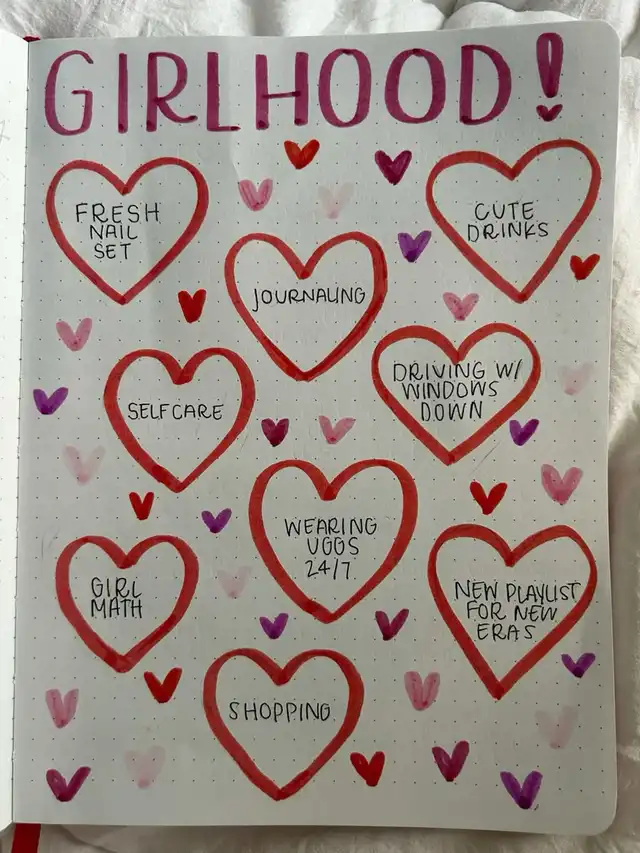 GIRLHOOD!
FRESH
NAIL
SET
CUTE
DRINKS
JOURNALING
DRIVING W/
WINDOWS
DOWN
SELFCARE
WEARING
UGGS
24/7
GIRL
MATH
NEW PLAYLIST
FOR NEW
ERAS
SHOPPING